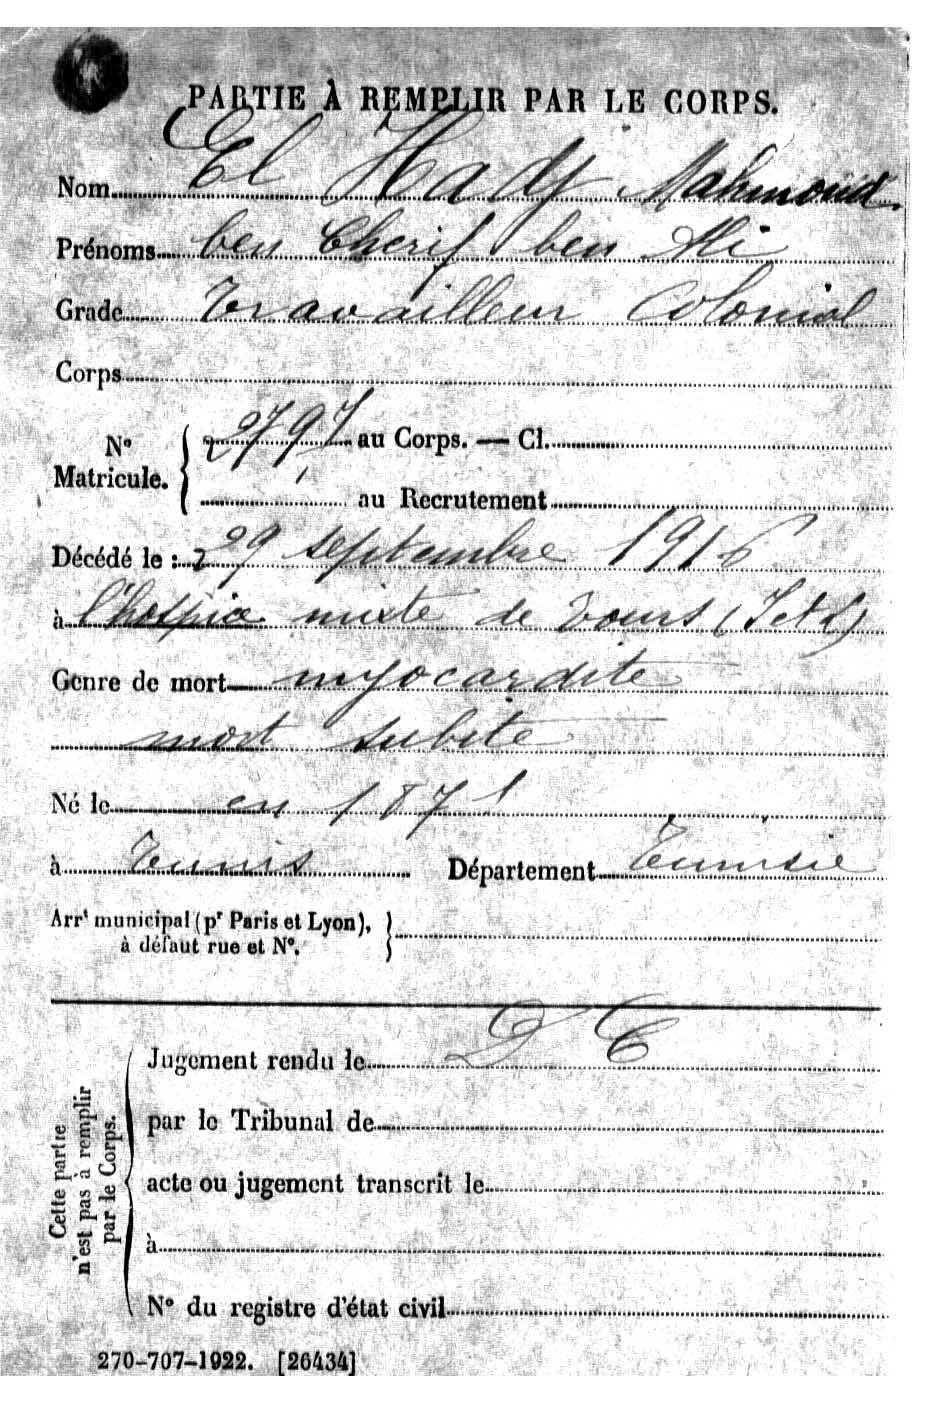 PARTIE À REMPLIR PAR LE CORPS.
Nom El Hadj Mahmoud.
Prénoms ben Cherif ben Ali
Grade Travailleur Colonial
Corps
N° Matricule. { 2797 au Corps. — Cl.
au Recrutement
Décédé le : 29 septembre 1916
à l'hospice mixte de Tours (I et L)
Genre de mort myocardite
mort subite
Né le en 1871
à Tunis Département Tunisie
Arrt municipal (pr Paris et Lyon), }
à défaut rue et N°.
Cette partie
n'est pas à remplir
par le Corps.
Jugement rendu le
par le Tribunal de
acte ou jugement transcrit le
à
N° du registre d'état civil
270-707-1922. [26434]